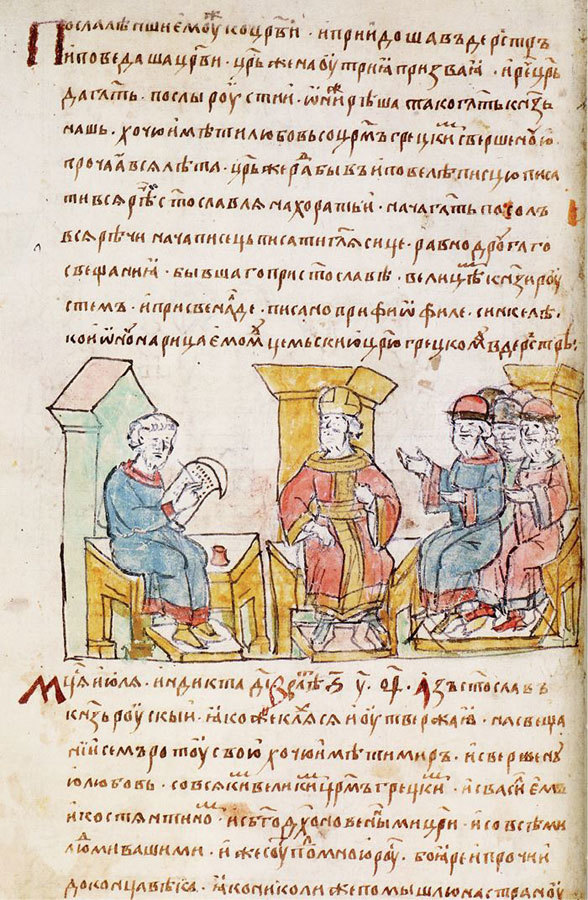 Послалѣпшиемоу ко цр҃ви · и приидоша въ дерⷭ҇тръ
и поведаша цр҃ви · цр҃ь же наоутриꙗ призва ꙗ · и реⷱ҇ цр҃ь
да гл҃ть · послы роустии · ѡниⷤ рѣша тако гл҃ть кн҃зь
нашь · хочю имѣти любовь со цр҃мъ грецкиⷨ свершеноую
прочаꙗ всꙗ лѣта · цр҃ь же раⷣ бывъ и повелѣ писцю писа
ти всꙗ рѣⷱ҇ ст҃ославлѧ на хоратьи · нача гл҃ть посолъ
всꙗ рѣчи нача писець писати гл҃ꙗ сице · равно дроугаго
свещаниꙗ · бывшаго при ст҃ославѣ · велицѣⷨ кн҃зи роу
стемъ · и при свеналде · писано при фиѡфиле · синкелѣ ·
ко иѡноу нарицаемоⷨ цемьскию цр҃ю грецкомꙋ въ дерⷭ҇трѣ :
Мцⷭ҇а июлѧ · индикта дı҃ · в лѣⷮ ҂ѕ҃ · у҃ · о҃ѳ · Азъ ст҃ославъ
кн҃зь роускыи · ꙗкоже клѧсѧ и оутвержаю · на свеща
нии семъ ротоу свою хочю имѣти миръ · и свершену
ю любовь · со всѧкиⷨ великиⷨ цр҃мъ грецкиⷨ · и с васильемъ
и костѧнтиноⷨ · и с бг҃одх҃новеными цр҃и · и со всѣми
люⷣми вашими · и же соуⷮ поⷣ мною роуⷭ҇ · боѧре и прочии
до конца вѣка · ꙗко николи же помышлю на странꙋ